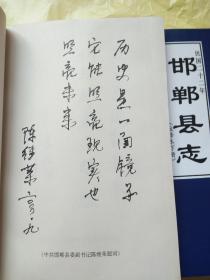 历史是一面镜子
它能照亮现实也
照亮未来
陈继荣 二〇〇·九
(中共邯郸县委副书记陈继荣题词)
民国二十二年
邯郸县志